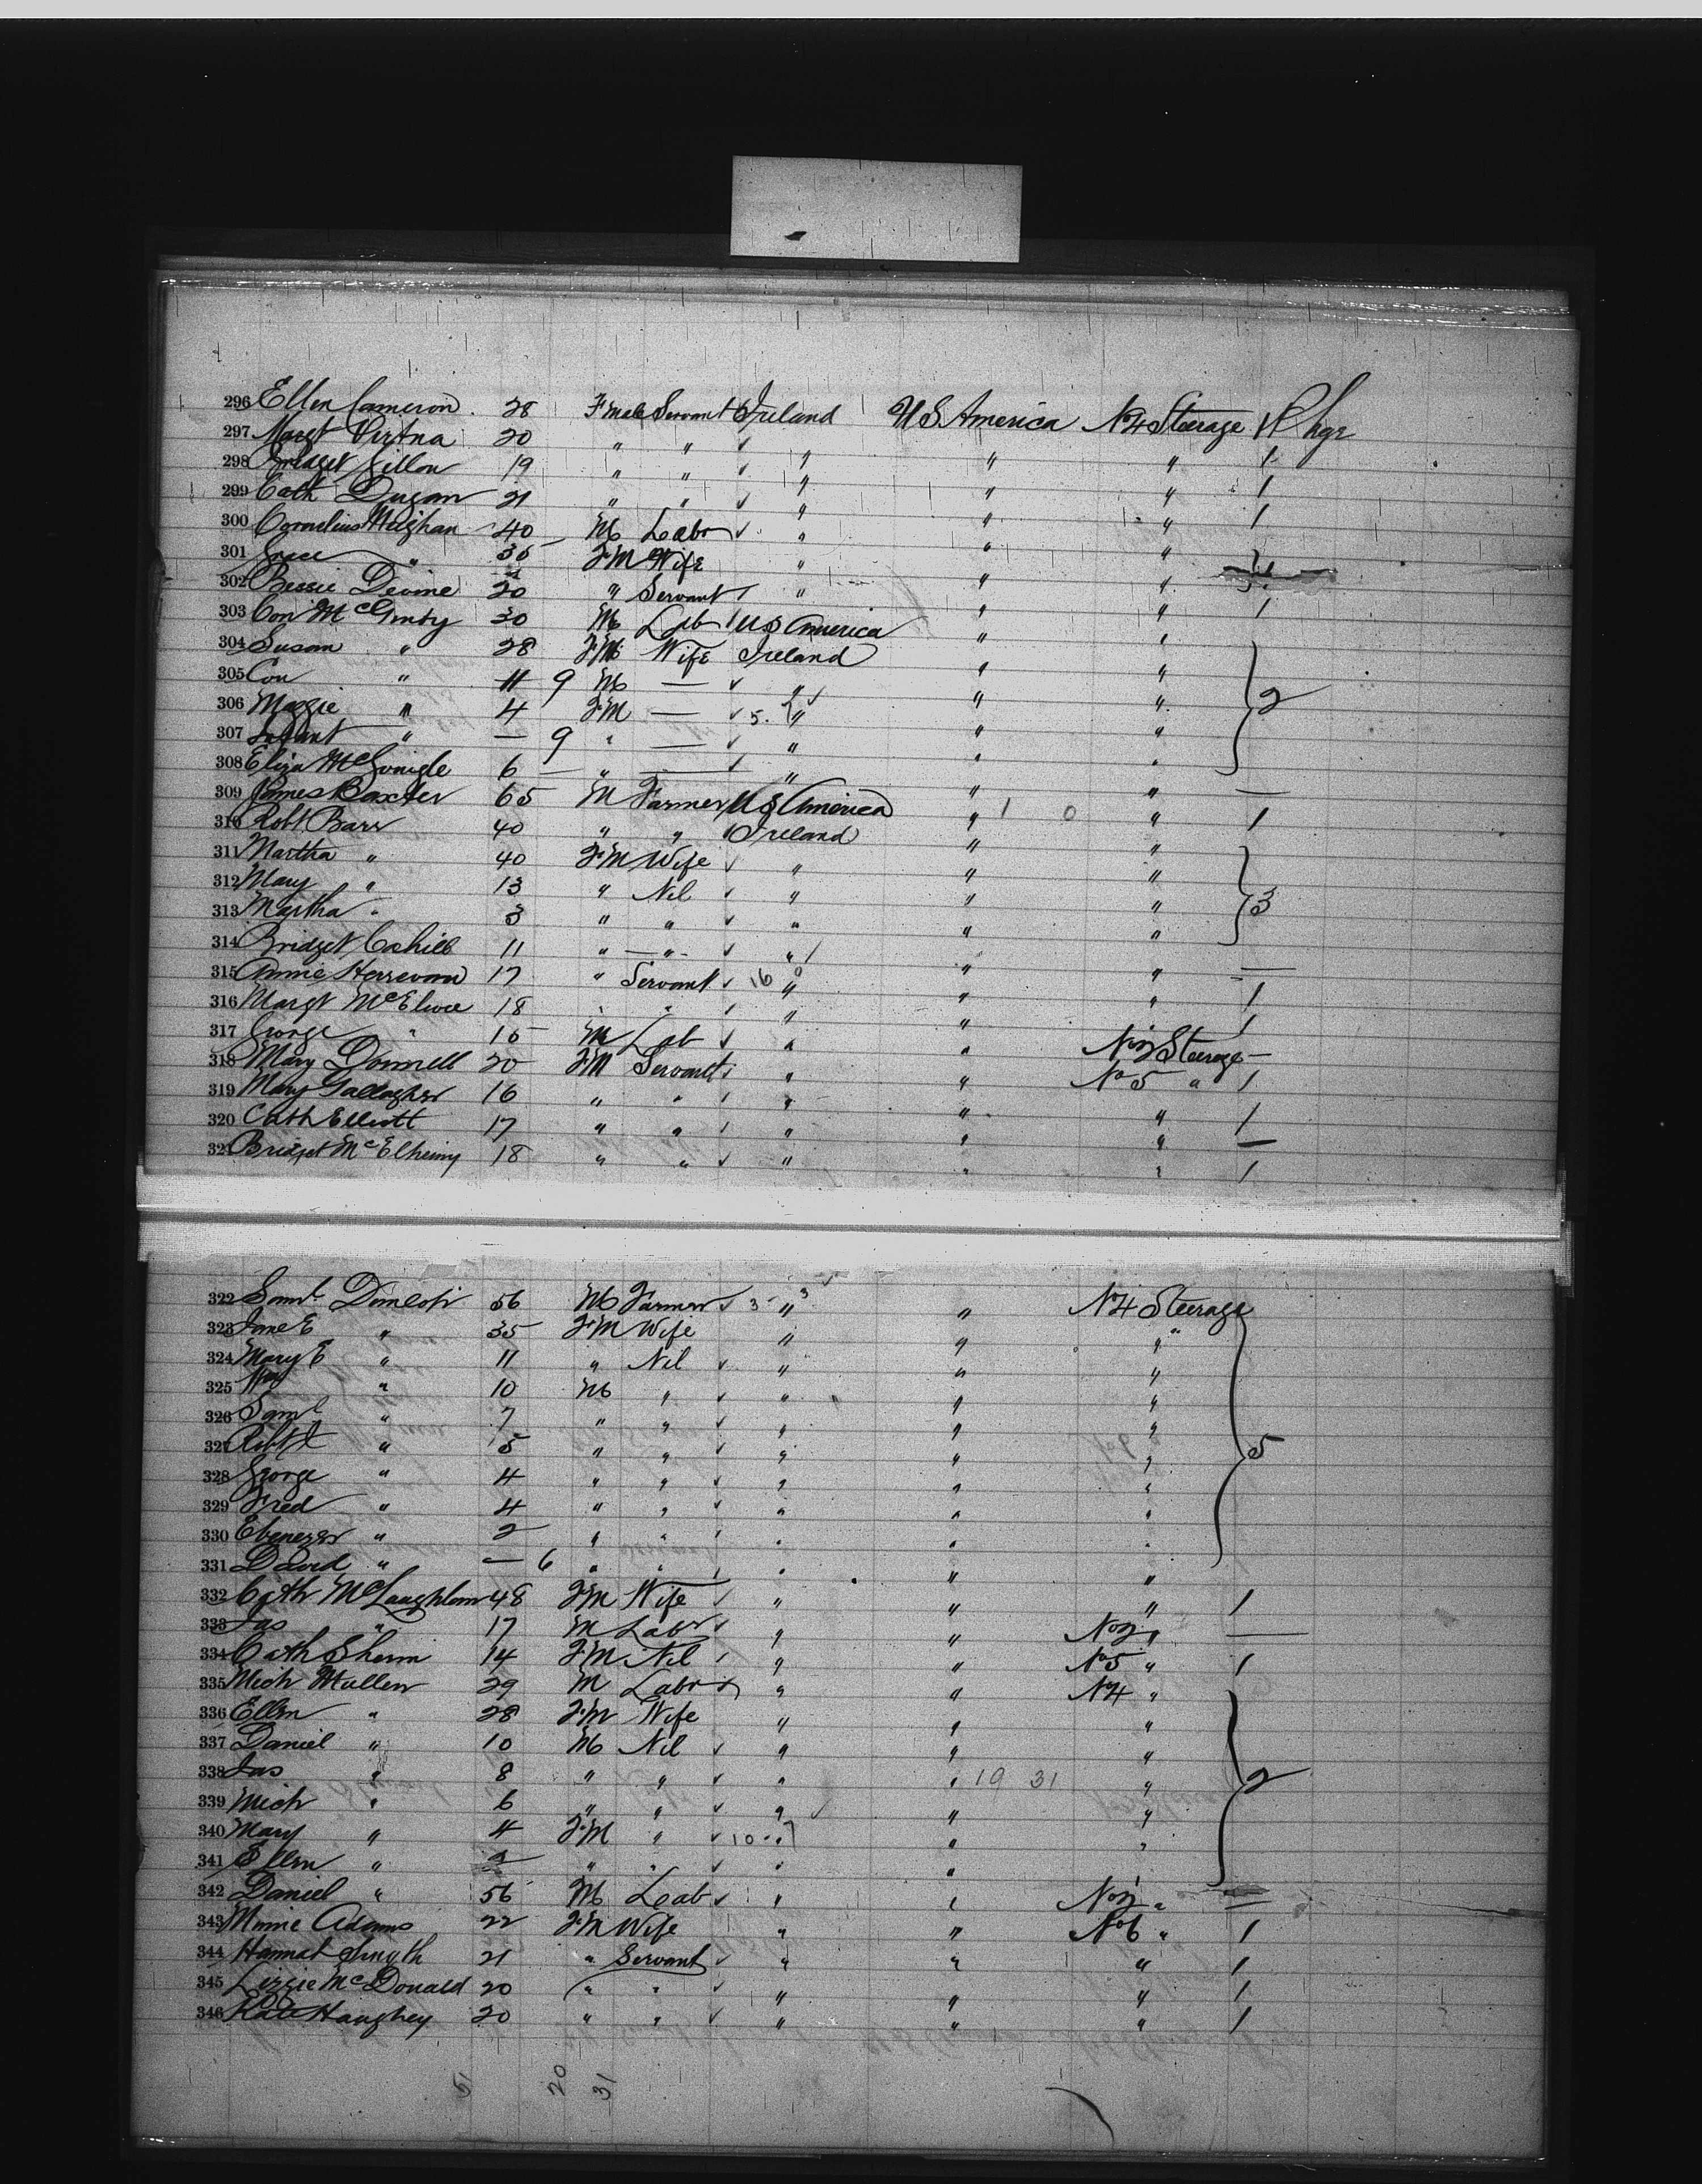 296 Ellen Cameron 28 Fmale Servant Ireland U S America No 4 Steerage 1 Pkge
297 Margt 20 " " " " " 1
298 Bridget Gillon 19 " " " " " 1
299 Cath Dugan 21 " " " " " 1
300 Cornelius Meighan 40 M Labr " " "
301 Grace " 35 FM Wife " " "
302 Bessie Devine 20 " Servant " " " 1
303 Con McGinty 30 M Lab U S America " "
304 Susan " 28 FM Wife Ireland " "
305 Con " 11 9 M — " " " 2
306 Maggie " 4 FM — 5 " " "
307 Infant " — 9 " — " " "
308 Eliza McGonigle 6 " — " " " —
309 James Baxter 65 M Farmer U S America " 1 0 " 1
310 Robt Barr 40 " " Ireland " "
311 Martha " 40 FM Wife " " "
312 Mary " 13 " Nil " " " 3
313 Martha " 3 " " " " "
314 Bridget Cahill 11 " " " " " —
315 Annie 17 " Servant 16 " " " 1
316 Margt McElwee 18 " " " " " 1
317 George " 15 M Lab " " No 2 Steerage —
318 Mary Donnell 20 FM Servant " " No 5 " 1
319 Mary Gallagher 16 " " " " " 1
320 Cath Elliott 17 " " " " " —
321 Bridget McElhinny 18 " " " " " 1
322 Saml Dunlop 56 M Farmer 3 " 3 " No 4 Steerage
323 Jane E " 35 FM Wife " " "
324 Mary E " 11 " Nil " " "
325 Wm " 10 M " " " "
326 Saml " 7 " " " " "
327 Robt J " 5 " " " " " 5
328 George " 4 " " " " "
329 Fred " 4 " " " " "
330 Ebenezer " 2 " " " " "
331 David " — 6 " " " " "
332 Cath McLaughlin 48 FM Wife " " " 1
333 Jas " 17 M Labr " " No 2 " —
334 Cath 14 FM Nil " " No 5 " 1
335 Mich Mullen 29 M Labr " " No 4 "
336 Ellen " 28 FM Wife " " "
337 Daniel " 10 M Nil " " "
338 Jas " 8 " " " " 19 31 " 2
339 Mich " 6 " " " " "
340 Mary " 4 FM " 10 " 7 " "
341 Ellen " 2 " " " "
342 Daniel " 56 M Lab " " No 2 " —
343 Minnie Adams 22 FM Wife " " No 6 " 1
344 Hannah Smyth 21 " Servant " " " 1
345 Lizzie McDonald 20 " " " " " 1
346 Kate Haughey 20 " " " " " 1
51 20 31